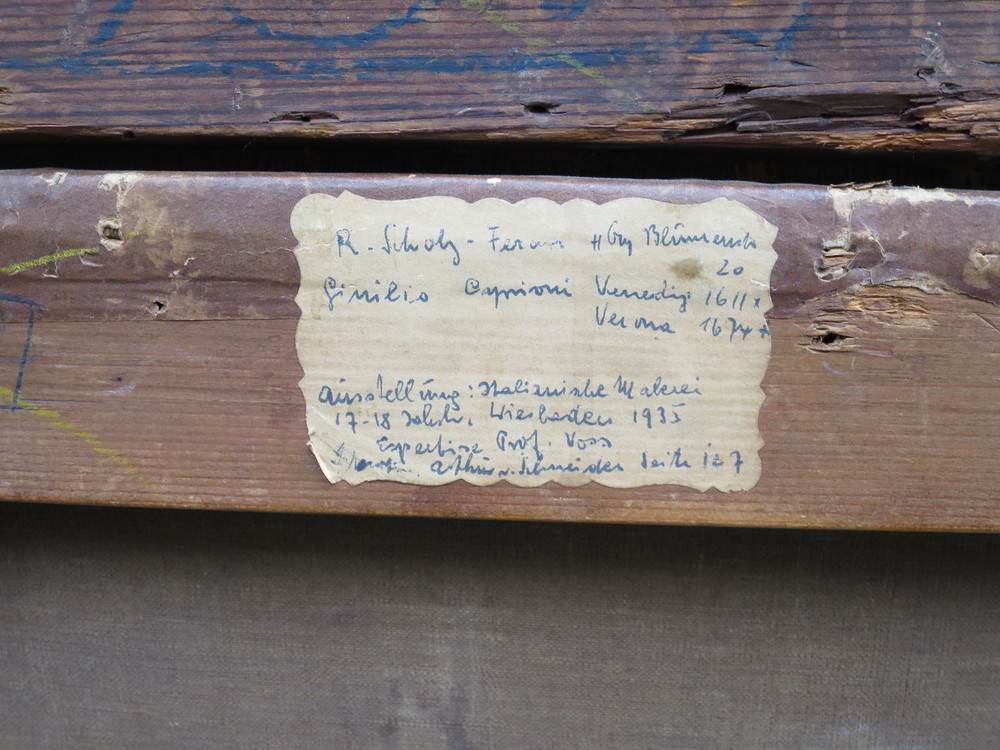 R. Scholz-Feran Hbg Blumenstr
20
Giulio Carpioni Venedig 1611 x
Verona 1674 x
Ausstellung: Italienische Malerei
17-18 Jahrh. Wiesbaden 1935
Expertise Prof. Voss
Arthur v. Schneider Seite 127